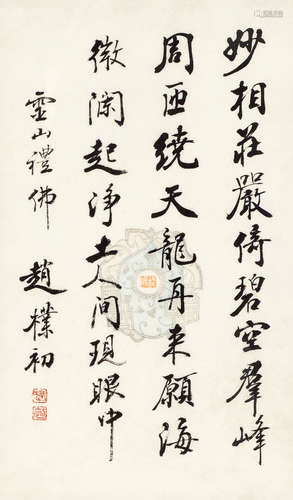 妙相莊嚴倚碧空羣峰
周匝繞天龍再来願海
微瀾起净土人间現眼中
靈山禮佛
趙樸初